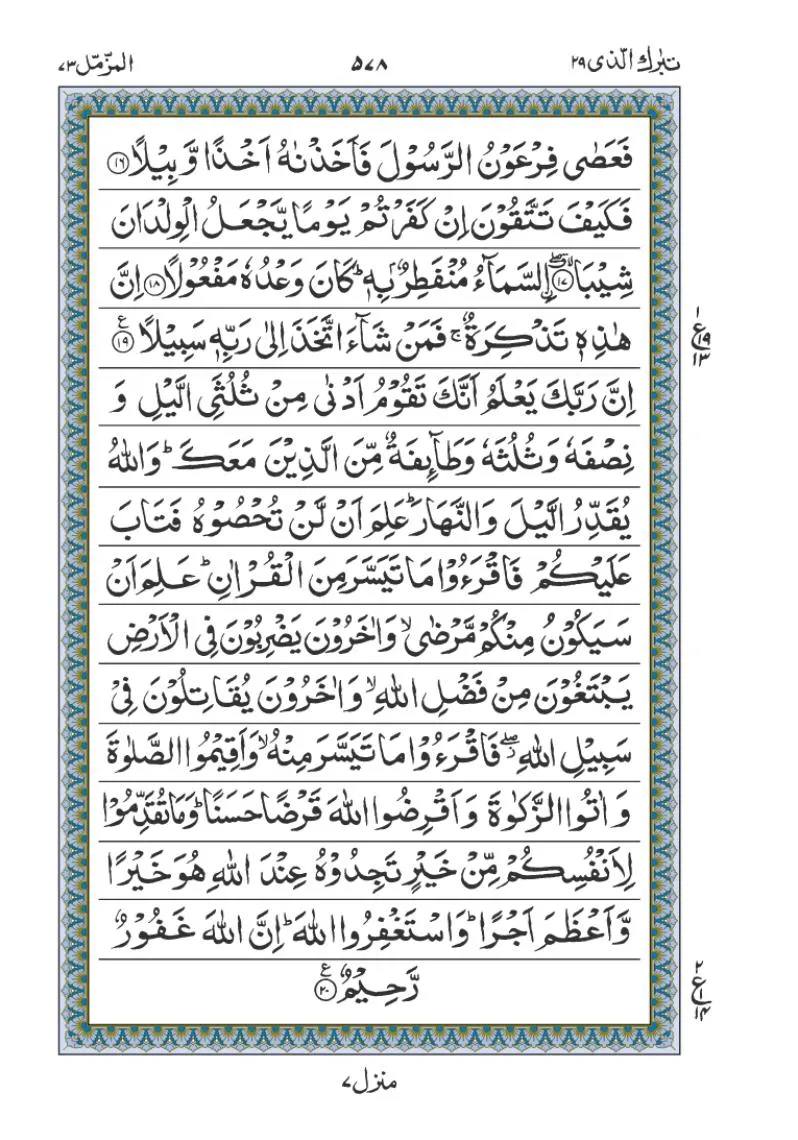 تبٰرك الّذى ٢٩ ٥٧٨ المزّمّل ٧٣
فَعَصٰى فِرْعَوْنُ الرَّسُوْلَ فَاَخَذْنٰهُ اَخْذًا وَّبِيْلًا ١٦
فَكَيْفَ تَتَّقُوْنَ اِنْ كَفَرْتُمْ يَوْمًا يَّجْعَلُ الْوِلْدَانَ
شِيْبَا ۨ ١٧ۖ اِلسَّمَآءُ مُنْفَطِرٌۢ بِهٖؕ كَانَ وَعْدُهٗ مَفْعُوْلًا ١٨ اِنَّ
هٰذِهٖ تَذْكِرَةٌۚ فَمَنْ شَآءَ اتَّخَذَ اِلٰى رَبِّهٖ سَبِيْلًا ١٩ ع
١ ع ١٩ ١٣
اِنَّ رَبَّكَ يَعْلَمُ اَنَّكَ تَقُوْمُ اَدْنٰى مِنْ ثُلُثَىِ الَّيْلِ وَ
نِصْفَهٗ وَثُلُثَهٗ وَطَآٮِٕفَةٌ مِّنَ الَّذِيْنَ مَعَكَؕ وَاللّٰهُ
يُقَدِّرُ الَّيْلَ وَالنَّهَارَؕ عَلِمَ اَنْ لَّنْ تُحْصُوْهُ فَتَابَ
عَلَيْكُمْ فَاقْرَءُوْا مَا تَيَسَّرَ مِنَ الْقُرْاٰنِؕ عَلِمَ اَنْ
سَيَكُوْنُ مِنْكُمْ مَّرْضٰىۙ وَاٰخَرُوْنَ يَضْرِبُوْنَ فِى الْاَرْضِ
يَبْتَغُوْنَ مِنْ فَضْلِ اللّٰهِۙ وَاٰخَرُوْنَ يُقَاتِلُوْنَ فِىْ
سَبِيْلِ اللّٰهِۖ فَاقْرَءُوْا مَا تَيَسَّرَ مِنْهُۙ وَاَقِيْمُوا الصَّلٰوةَ
وَاٰتُوا الزَّكٰوةَ وَاَقْرِضُوا اللّٰهَ قَرْضًا حَسَنًاؕ وَمَا تُقَدِّمُوْا
لِاَنْفُسِكُمْ مِّنْ خَيْرٍ تَجِدُوْهُ عِنْدَ اللّٰهِ هُوَ خَيْرًا
وَّاَعْظَمَ اَجْرًاؕ وَاسْتَغْفِرُوا اللّٰهَؕ اِنَّ اللّٰهَ غَفُوْرٌ
رَّحِيْمٌ ٢٠ ع
٢ ع ١ ١٤
منزل ٧